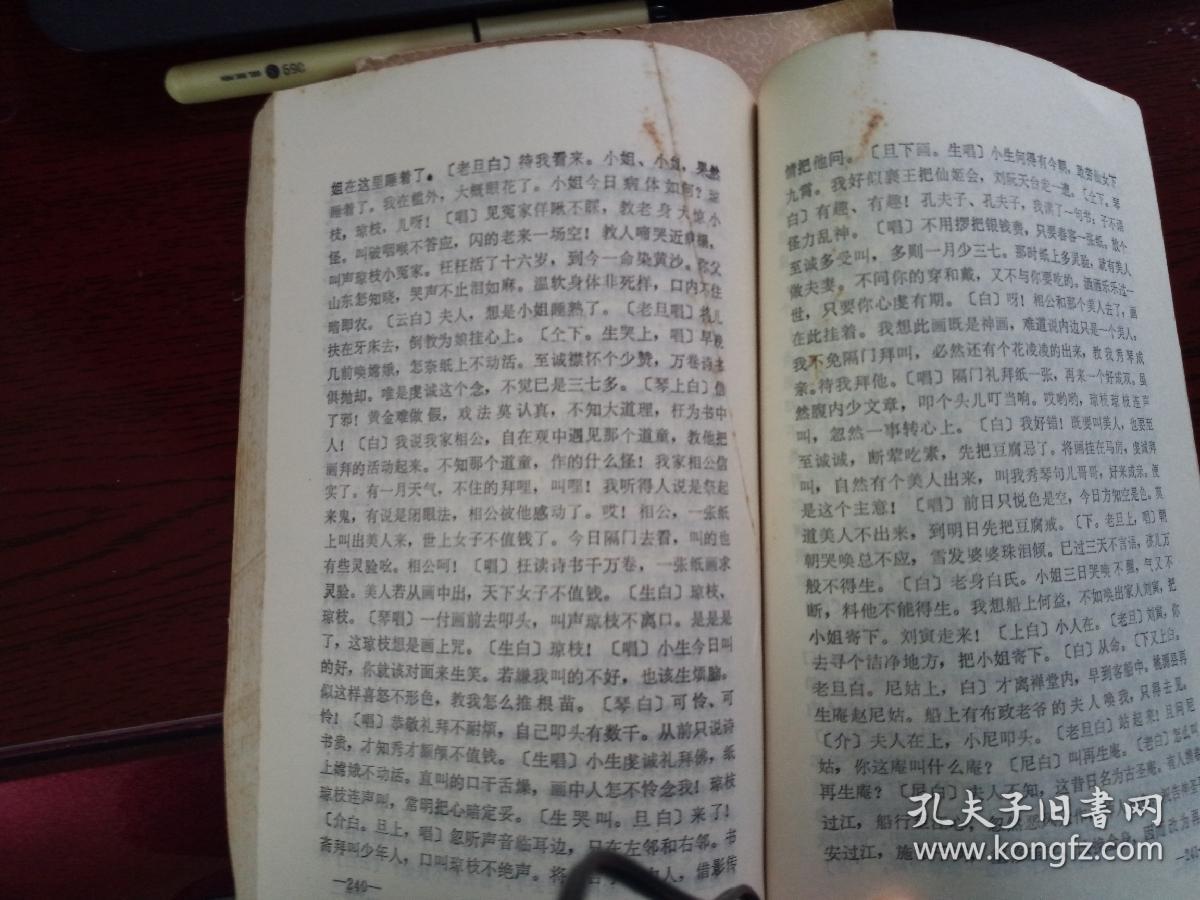 姐在这里睡着了。〔老旦白〕待我看来。小姐、小姐，果然
睡着了。我在槛外，大概眼花了。小姐今日病体如何？琼
枝，琼枝，儿呀！〔唱〕见冤家佯瞅不睬，教老身大惊小
怪。叫破咽喉不答应，闪的老来一场空！教人啼哭近
叫声琼枝小冤家。枉枉活了十六岁，到今一命染黄沙。你父
山东怎知晓，哭声不止泪如麻。温软身体非死样，口内不住
暗即农。〔云白〕夫人，想是小姐睡熟了。〔老旦唱〕将儿
扶在牙床去，倒教为娘挂心上。〔仝下。生哭上，唱〕早晚
几前唤嫦娥，怎奈纸上不动活。至诚襟怀个少赞，万卷诗书
俱抛却。唯是虔诚这个念，不觉巳是三七多。〔琴上白〕信
了邪！黄金难做假，戏法莫认真，不知大道理，枉为书中
人！〔白〕我说我家相公，自在观中遇见那个道童，教他把
画拜的活动起来。不知那个道童，作的什么怪！我家相公信
实了。有一月天气，不住的拜哩，叫哩！我听得人说是祭起
来鬼，有说是闭眼法，相公被他感动了。哎！相公，一张纸
上叫出美人来，世上女子不值钱了。今日隔门去看，叫的也
有些灵验吆。相公呵！〔唱〕枉读诗书千万卷，一张纸画求
灵验。美人若从画中出，天下女子不值钱。〔生白〕琼枝，
琼枝。〔琴唱〕一付画前去叩头，叫声琼枝不离口。是是是
了，这琼枝想是画上咒。〔生白〕琼枝！〔唱〕小生今日叫
的好，你就该对面来生笑。若嫌我叫的不好，也该生烦脑。
似这样喜怒不形色，教我怎么推根苗。〔琴白〕可怜、可
怜！〔唱〕恭敬礼拜不耐烦，自己叩头有数千。从前只说诗
书贵，才知秀才额颅不值钱。〔生唱〕小生虔诚礼拜佛，纸
上嫦娥不动活。直叫的口干舌燥，画中人怎不怜念我！琼枝
琼枝连声叫，常明把心暗定妥。〔生哭叫。旦白〕来了！
〔介白。旦上，唱〕忽听声音临耳边，只在左邻和右邻。书
斋拜叫少年人，口叫琼枝不绝声。将 人，借影传
—240—
情把他问。〔旦下画。生唱〕小生问得有今朝，敢劳仙女下
九霄。我好似襄王把仙姬会，刘阮天台走一遭。〔仝下。琴
白〕有趣、有趣！孔夫子、孔夫子，我满了一句书：子不语
怪力乱神。〔唱〕不用拶把银钱费，只要春客一张纸。放个
至诚多受叫，多则一月少三七。那时纸上多灵验，就有美人
做夫妻。不问你的穿和戴，又不与你要吃的。洒洒乐乐过一
世，只要你心虔有期。〔白〕呀！相公和那个美人去了，画
在此挂着。我想此画既是神画，难道说内边只是一个美人，
我不免隔门拜叫，必然还有个花凌凌的出来，教我秀琴成
亲。待我拜他。〔唱〕隔门礼拜纸一张，再来一个好成双。虽
然腹内少文章，叩个头儿叮当响。哎哟哟，琼枝琼枝连声
叫，忽然一事转心上。〔白〕我好错！既要叫美人，也要至
至诚诚，断荤吃素，先把豆腐忌了。将画挂在马房，虔诚拜
叫，自然有个美人出来，叫我秀琴句儿哥哥，好来成亲。便
是这个主意！〔唱〕前日只悦色是空，今日方知空是色。莫
道美人不出来，到明日先把豆腐戒。〔下。老旦上，唱〕朝
朝哭唤总不应，雪发婆婆珠泪倾。巳过三天不言语，孩儿万
般不得生。〔白〕老身白氏。小姐三日哭唤不醒，气又不
断，料他不能得生。我想船上何益，不如唤出家人刘寅，把
小姐寄下。刘寅走来！〔上白〕小人在。〔老旦〕刘寅，你
去寻个洁净地方，把小姐寄下。〔白〕从命。〔下又上白。
老旦白。尼姑上，白〕才离禅堂内，早到客船中。桃源县再
生庵赵尼姑。船上有布政老爷的夫人唤我，只得去见。
〔介〕夫人在上，小尼叩头。〔老旦白〕站起来！且问尼
姑，你这庵叫什么庵？〔尼白〕叫再生庵。〔老白〕怎么叫
再生庵？〔尼白〕夫人 知，这昔日名为古圣庵。有人携眷
过江，船行至江心，忽然
安过江，施 身，因而改为再
—241—
孔夫子旧书网
www.kongfz.com